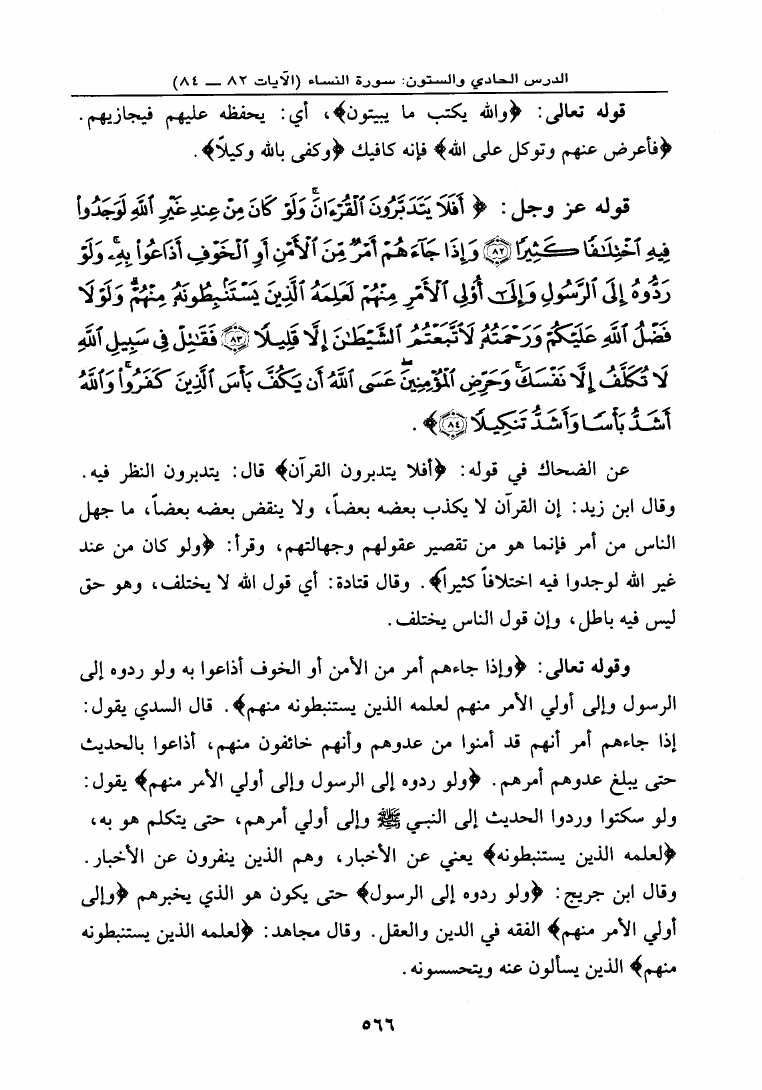 الدرس الحادي والستون: سورة النساء (الآيات ٨٢ — ٨٤)
قوله تعالى: ﴿والله يكتب ما يبيتون﴾، أي: يحفظه عليهم فيجازيهم.
﴿فأعرض عنهم وتوكل على الله﴾ فإنه كافيك ﴿وكفى بالله وكيلاً﴾.
قوله عز وجل: ﴿ أَفَلَا يَتَدَبَّرُونَ ٱلْقُرْءَانَ ۚ وَلَوْ كَانَ مِنْ عِندِ غَيْرِ ٱللَّهِ لَوَجَدُوا۟
فِيهِ ٱخْتِلَٰفًا كَثِيرًا ٨٢ وَإِذَا جَآءَهُمْ أَمْرٌ مِّنَ ٱلْأَمْنِ أَوِ ٱلْخَوْفِ أَذَاعُوا۟ بِهِۦ ۖ وَلَوْ
رَدُّوهُ إِلَى ٱلرَّسُولِ وَإِلَىٰٓ أُو۟لِى ٱلْأَمْرِ مِنْهُمْ لَعَلِمَهُ ٱلَّذِينَ يَسْتَنۢبِطُونَهُۥ مِنْهُمْ ۗ وَلَوْلَا
فَضْلُ ٱللَّهِ عَلَيْكُمْ وَرَحْمَتُهُۥ لَٱتَّبَعْتُمُ ٱلشَّيْطَٰنَ إِلَّا قَلِيلًا ٨٣ فَقَٰتِلْ فِى سَبِيلِ ٱللَّهِ
لَا تُكَلَّفُ إِلَّا نَفْسَكَ ۚ وَحَرِّضِ ٱلْمُؤْمِنِينَ ۖ عَسَى ٱللَّهُ أَن يَكُفَّ بَأْسَ ٱلَّذِينَ كَفَرُوا۟ ۚ وَٱللَّهُ
أَشَدُّ بَأْسًا وَأَشَدُّ تَنكِيلًا ٨٤﴾ .
عن الضحاك في قوله: ﴿أفلا يتدبرون القرآن﴾ قال: يتدبرون النظر فيه.
وقال ابن زيد: إن القرآن لا يكذب بعضه بعضاً، ولا ينقض بعضه بعضاً، ما جهل
الناس من أمر فإنما هو من تقصير عقولهم وجهالتهم، وقرأ: ﴿ولو كان من عند
غير الله لوجدوا فيه اختلافاً كثيراً﴾. وقال قتادة: أي قول الله لا يختلف، وهو حق
ليس فيه باطل، وإن قول الناس يختلف.
وقوله تعالى: ﴿وإذا جاءهم أمر من الأمن أو الخوف أذاعوا به ولو ردوه إلى
الرسول وإلى أولي الأمر منهم لعلمه الذين يستنبطونه منهم﴾. قال السدي يقول:
إذا جاءهم أمر أنهم قد أمنوا من عدوهم وأنهم خائفون منهم، أذاعوا بالحديث
حتى يبلغ عدوهم أمرهم. ﴿ولو ردوه إلى الرسول وإلى أولي الأمر منهم﴾ يقول:
ولو سكتوا وردوا الحديث إلى النبي ﷺ وإلى أولي أمرهم، حتى يتكلم هو به،
﴿لعلمه الذين يستنبطونه﴾ يعني عن الأخبار، وهم الذين ينفرون عن الأخبار.
وقال ابن جريج: ﴿ولو ردوه إلى الرسول﴾ حتى يكون هو الذي يخبرهم ﴿وإلى
أولي الأمر منهم﴾ الفقه في الدين والعقل. وقال مجاهد: ﴿لعلمه الذين يستنبطونه
منهم﴾ الذين يسألون عنه ويتحسسونه.
٥٦٦